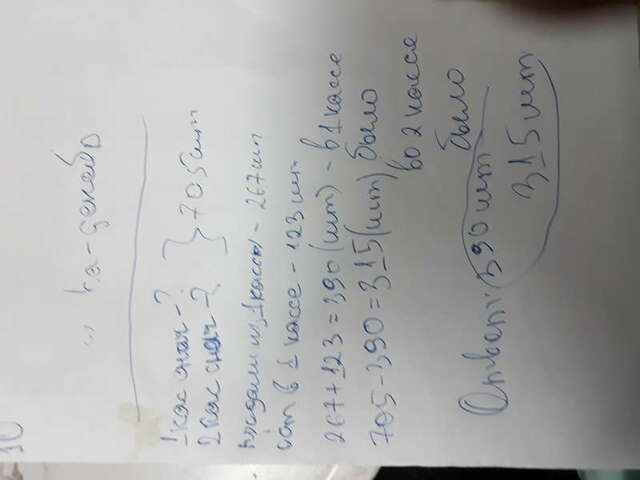 10
1 кас снач - ?
2 кас снач - ? } 705 шт
продали из 1 кассы - 267 шт
ост в 1 кассе - 123 шт
267 + 123 = 390 (шт) - в 1 кассе
705 - 390 = 315 (шт) было
во 2 кассе
Ответ: 390 шт было
315 шт